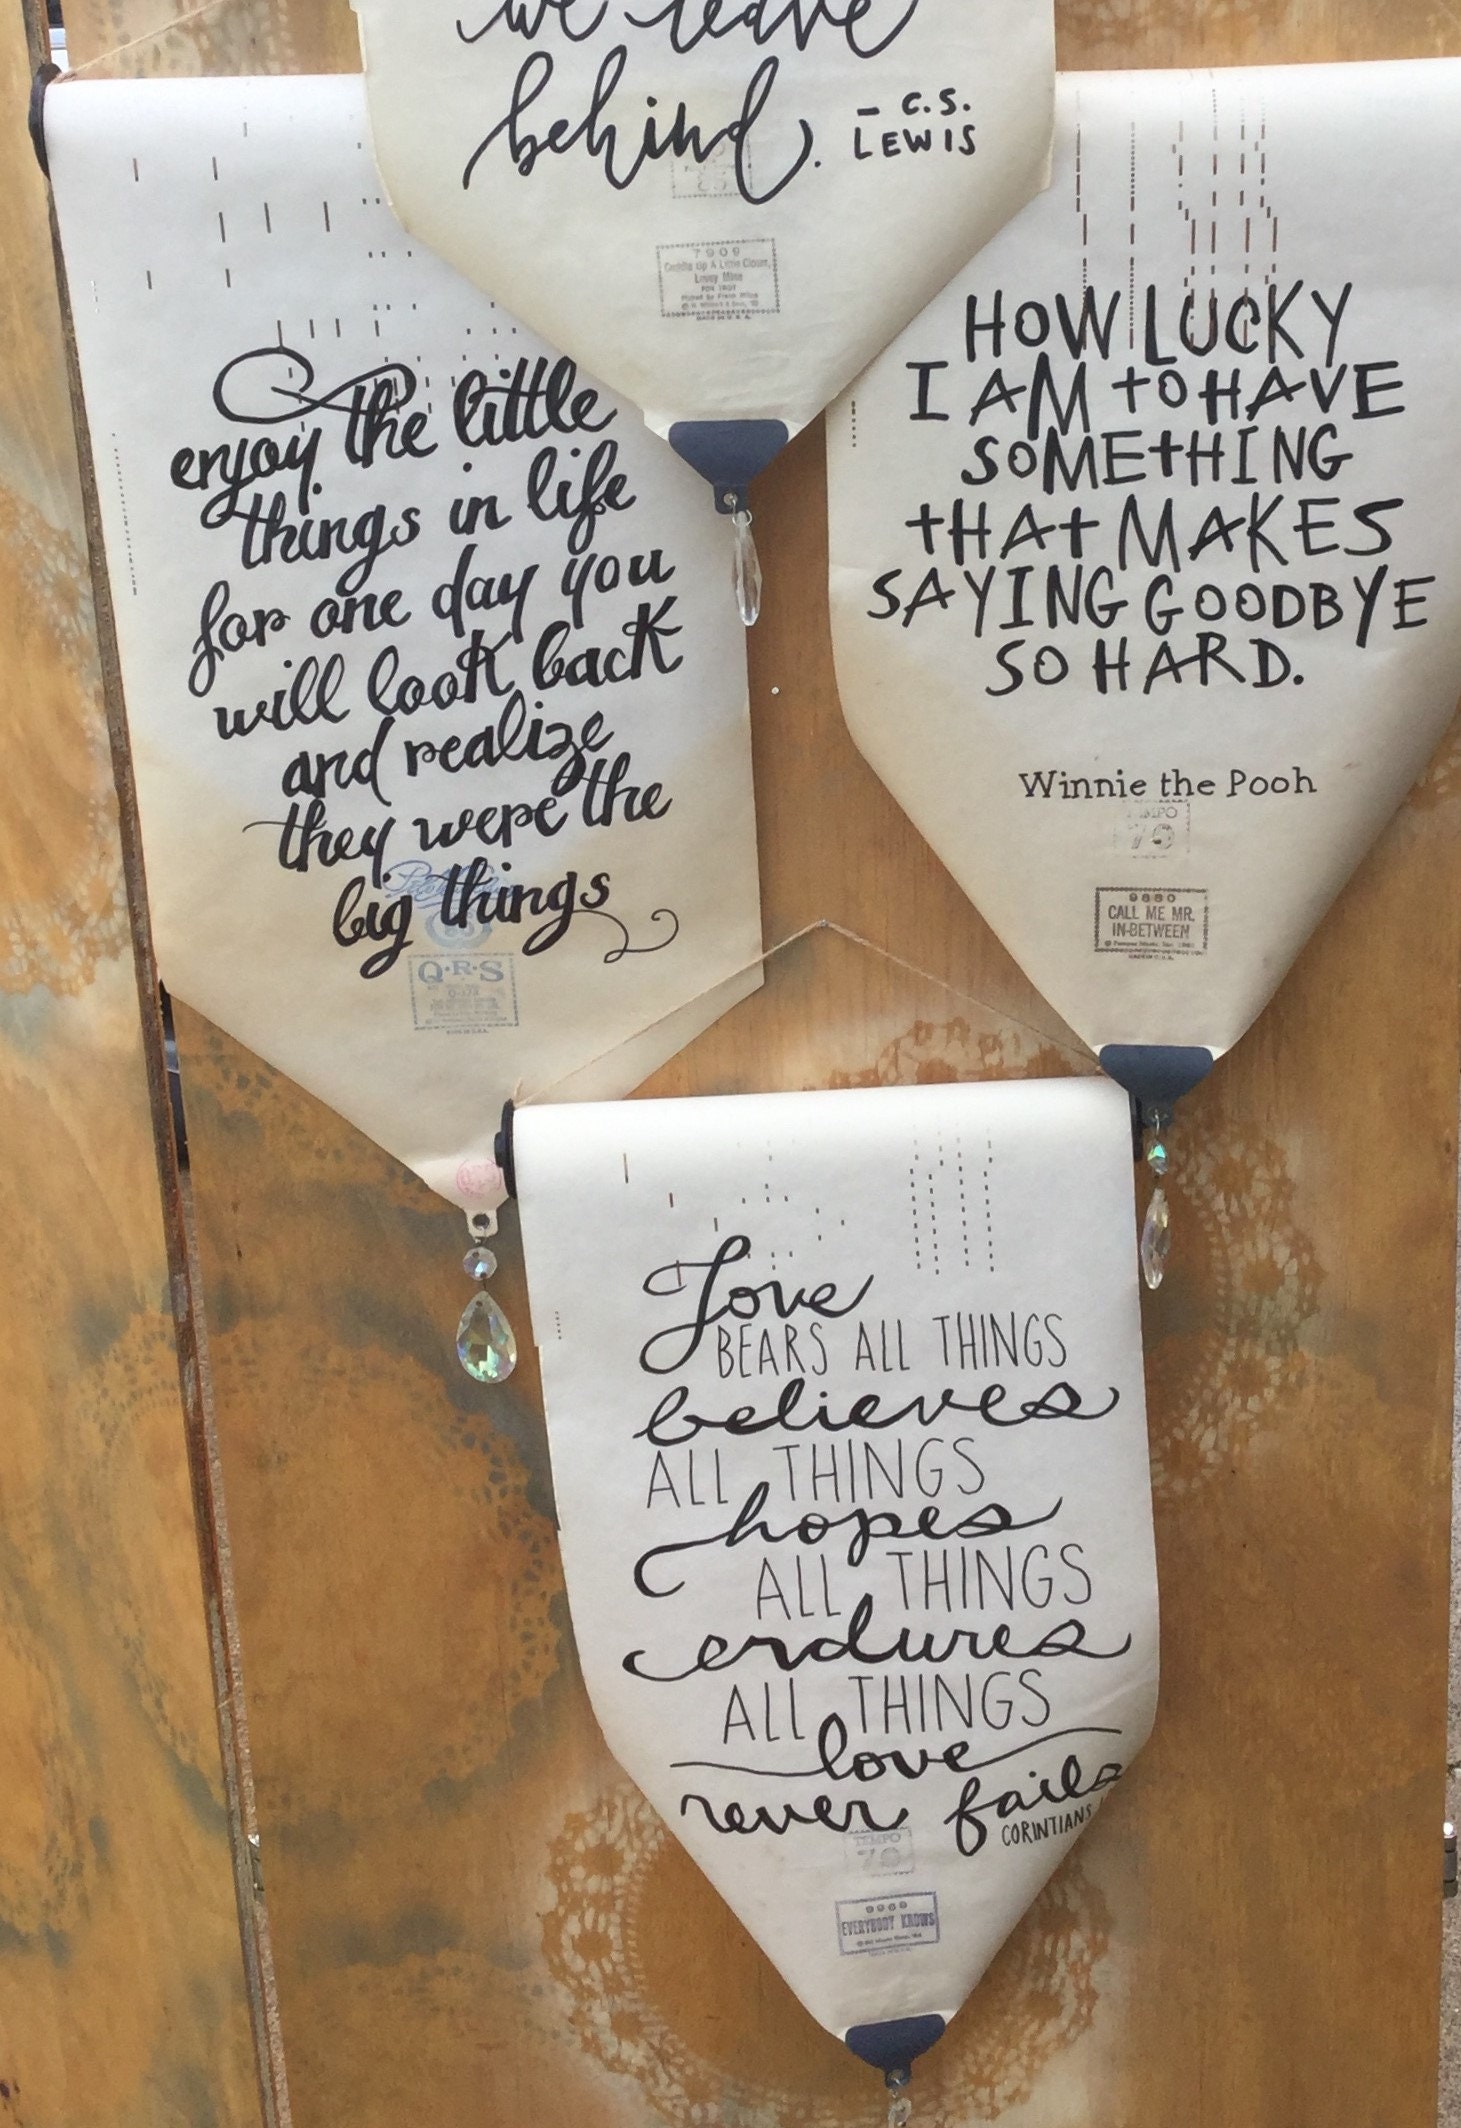 we leave
behind.
— C.S.
LEWIS
7909
Cuddle Up A Little Closer,
Lovey Mine
FOX TROT
MADE IN U.S.A.
enjoy the little
things in life
for one day you
will look back
and realize
they were the
big things
Q·R·S
HOW LUCKY
I AM to HAVE
SOMEtHING
tHAt MAKES
SAYING GOODBYE
SO HARD.
Winnie the Pooh
TEMPO
70
9880
CALL ME MR.
IN-BETWEEN
MADE IN U.S.A.
Love
BEARS ALL THINGS
believes
ALL THINGS
hopes
ALL THINGS
endures
ALL THINGS
love
never fails
CORINTIANS
TEMPO
70
EVERYBODY KNOWS